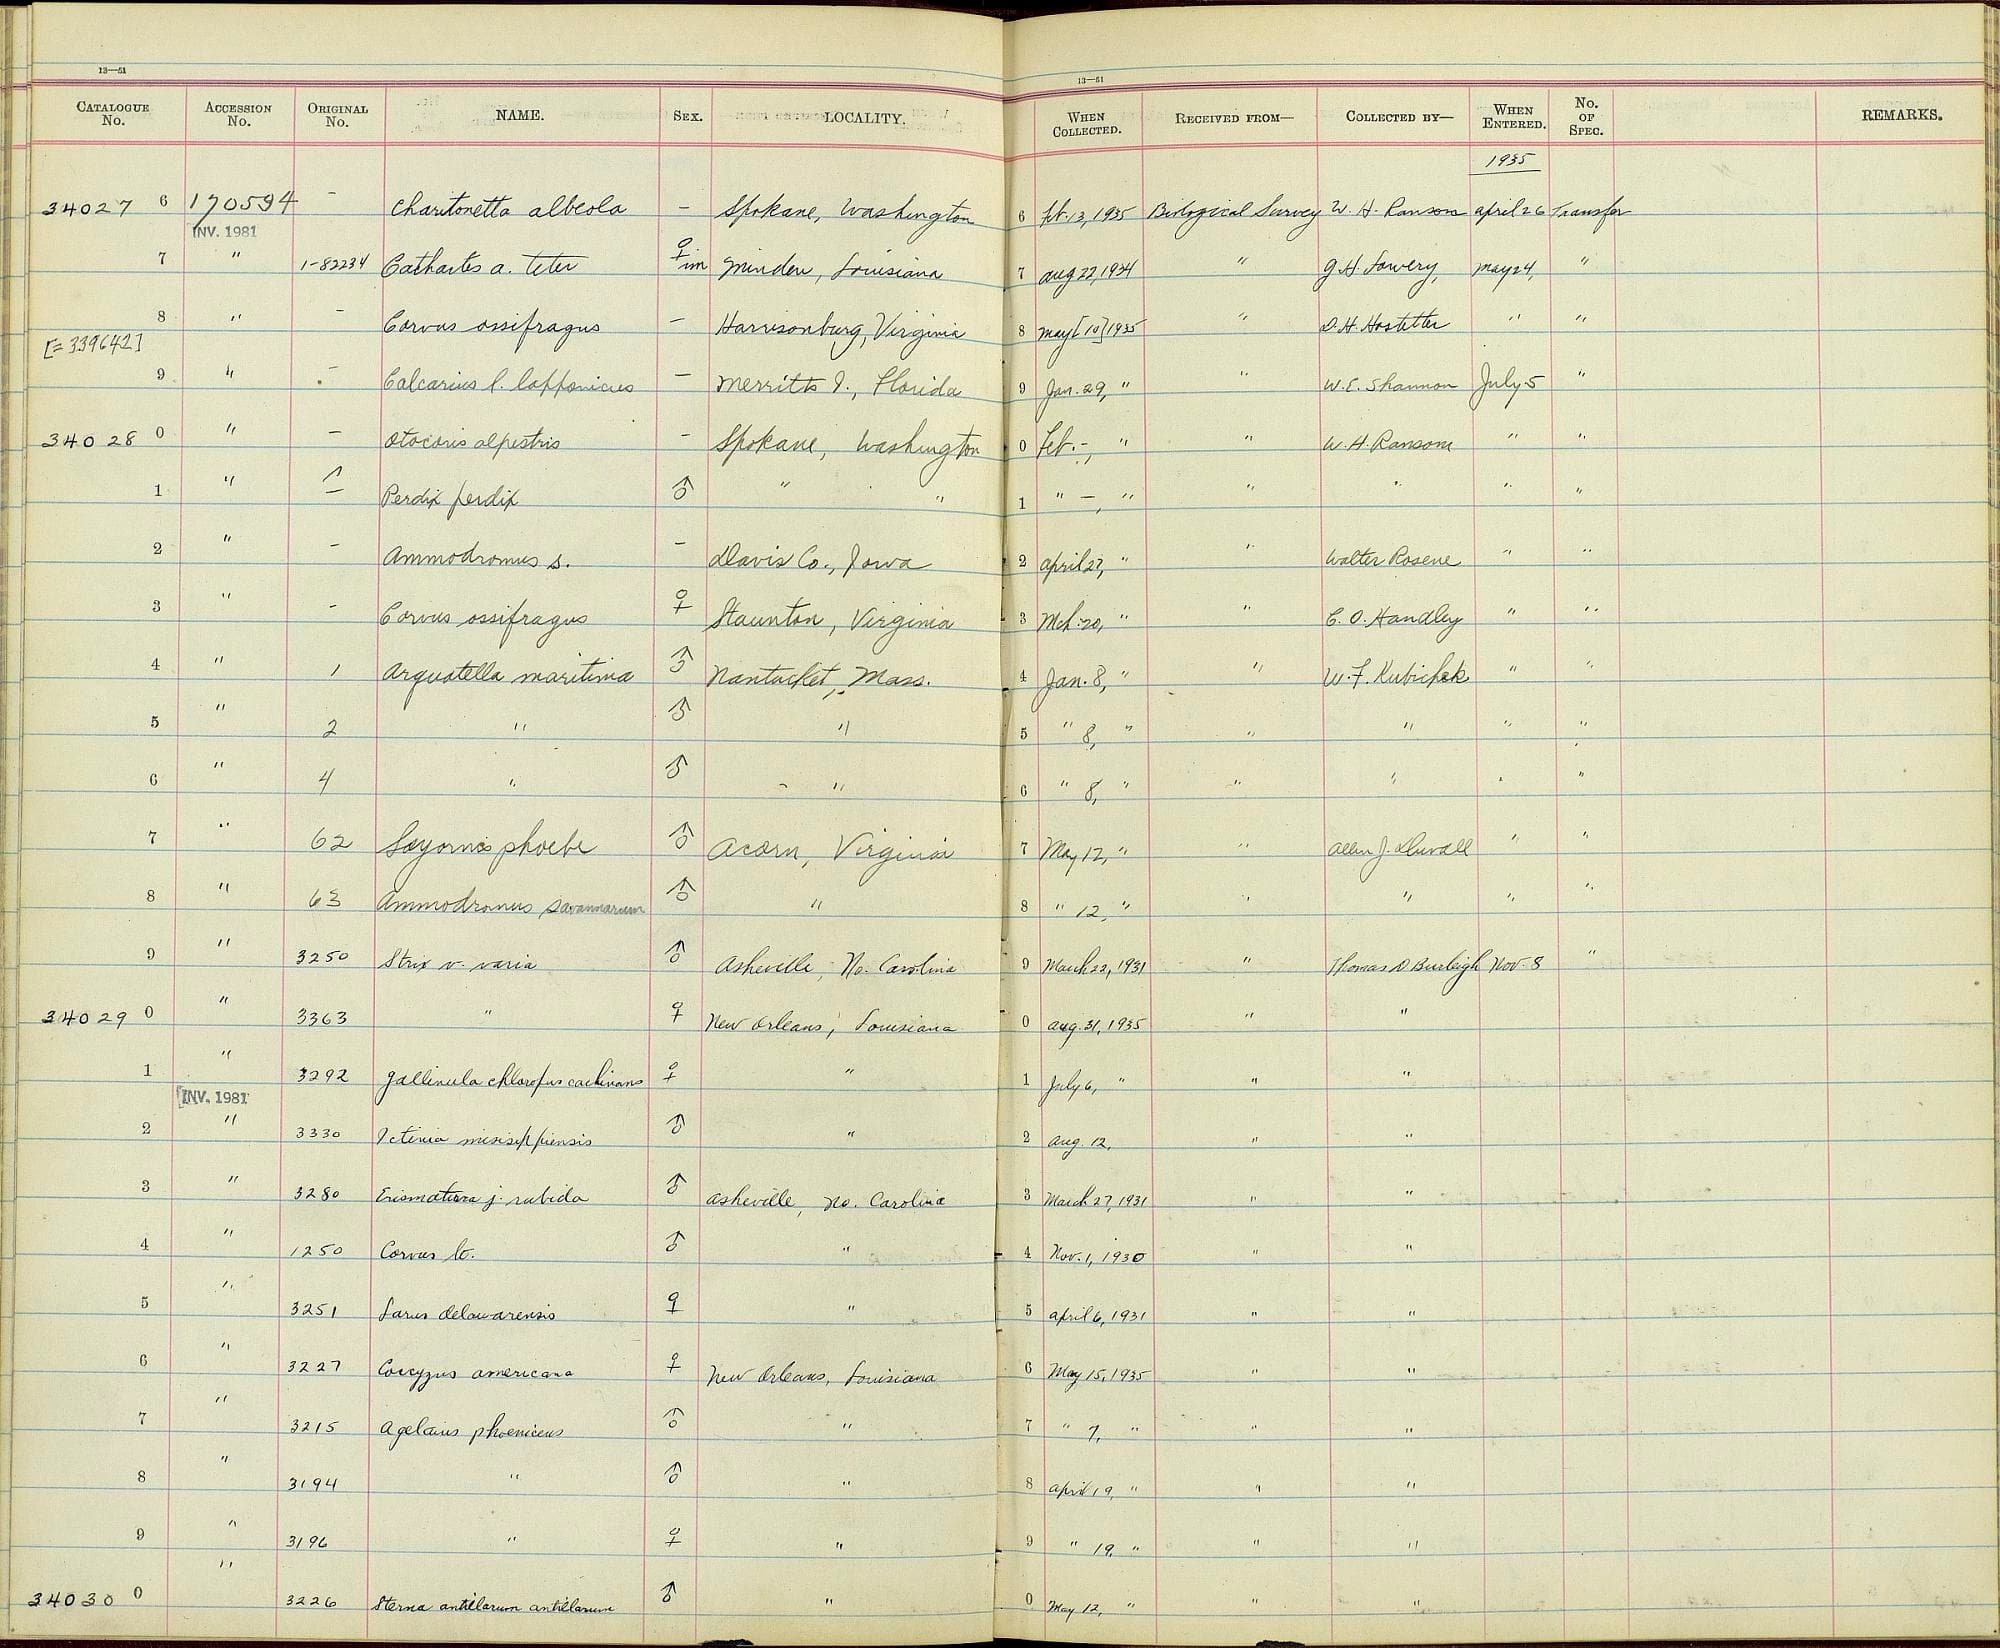 13—51 13—51
CATALOGUE No. ACCESSION No. ORIGINAL No. NAME. SEX. LOCALITY. WHEN COLLECTED. RECEIVED FROM— COLLECTED BY— WHEN ENTERED. No. OF SPEC. REMARKS.
1935
34027 6 170594 – Charitonetta albeola – Spokane, Washington 6 Feb. 13, 1935 Biological Survey W. H. Ransom April 26 Transfer
INV. 1981
7 " 1-82234 Cathartes a. teter ♀ im Minden, Louisiana 7 Aug 22, 1934 " G. H. Lowery, May 24, "
8 " – Corvus ossifragus – Harrisonburg, Virginia 8 May [10] 1935 " D. H. Hostetter " "
[= 339642]
9 " – Calcarius l. lapponicus – Merritts I., Florida 9 Jan. 29, " " W. E. Shannon July 5 "
34028 0 " – Otocoris alpestris – Spokane, Washington 0 Feb. –, " " W. H. Ransom " "
1 " – Perdix perdix ♂ " " 1 " –, " " " " "
2 " – Ammodromus s. – Davis Co., Iowa 2 April 27, " " Walter Rosene " "
3 " – Corvus ossifragus ♀ Staunton, Virginia 3 Mch. 20, " " C. O. Handley " "
4 " 1 Arquatella maritima ♂ Nantucket, Mass. 4 Jan. 8, " " W. F. Kubichek " "
5 " 2 " ♂ " 5 " 8, " " " " "
6 " 4 " ♂ " 6 " 8, " " " " "
7 " 62 Sayornis phoebe ♂ Acorn, Virginia 7 May 12, " " Allen J. Duvall " "
8 " 63 Ammodramus savannarum ♂ " 8 " 12, " " " " "
9 " 3250 Strix v. varia ♂ Asheville, No. Carolina 9 March 22, 1931 " Thomas D Burleigh Nov. 8 "
34029 0 " 3363 " ♀ New Orleans, Louisiana 0 Aug. 31, 1935 " "
1 " 3292 Gallinula chloropus cachinans ♀ " 1 July 6, " " "
[INV. 1981
2 " 3330 Ictinia misisippiensis ♂ " 2 Aug. 12, " "
3 " 3280 Erismatura j. rubida ♂ Asheville, No. Carolina 3 March 27, 1931 " "
4 " 1250 Corvus b. ♂ " 4 Nov. 1, 1930 " "
5 " 3251 Larus delawarensis ♀ " 5 April 6, 1931 " "
6 " 3227 Coccyzus americana ♀ New Orleans, Louisiana 6 May 15, 1935 " "
7 " 3215 Agelaius phoeniceus ♂ " 7 " 7, " " "
8 " 3194 " ♂ " 8 April 19, " " "
9 " 3196 " ♀ " 9 " 19, " " "
34030 0 " 3226 Sterna antillarum antillarum ♂ " 0 May 12, " " "